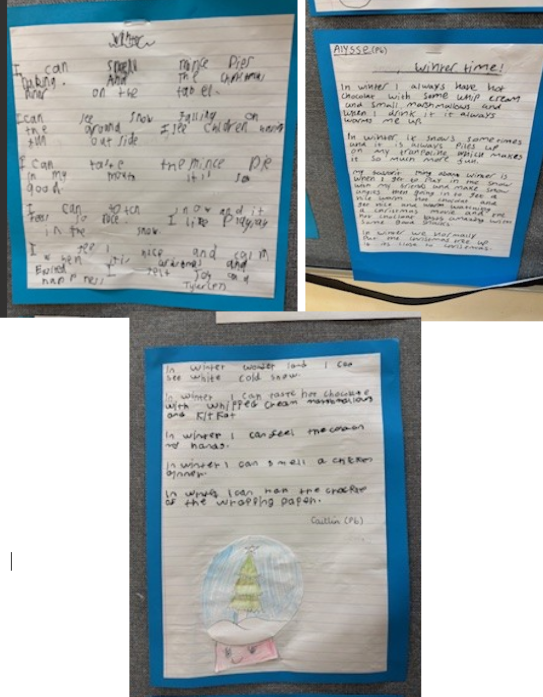 Winter
I can smell mince Pies
baking. And the christmas
diner on the tabel.
I can see snow falling on
the ground I see children having
fun out side
I can taste the mince Pie
in my mouth it is so
good
I can totch snow and it
Feels so nice I like Playing
in the snow.
I feel nice and calm
wen it is christmas and
Exited I felt Joy and
happness
Alysse (P6)
winter time!
In winter I always have hot
chocolat with some whip cream
and small marshmallows and
when I drink it it always
warms me up
In winter it snows sometimes
and it is always piles up
on my trampoline which makes
it so much more fun.
my favorit thing about winter is
when I get to play in the snow
with my friends and make snow
angles then going in to get a
nice warm hot chocolat and
get nice and warm watching
a christmas movie and
hot chocolat
some good snacks
In winter we normally
Put the christmas tree up
it is close to christmas.
In winter wonder land I can
see white cold snow.
In winter I can taste hot chocolate
with whipped cream marshmallows
and KitKat
In winter I can feel the on
my hands.
In winter I can smell a chicken
dinner.
In winter I can hear the
of the wrapping paper.
Caitlin (P6)